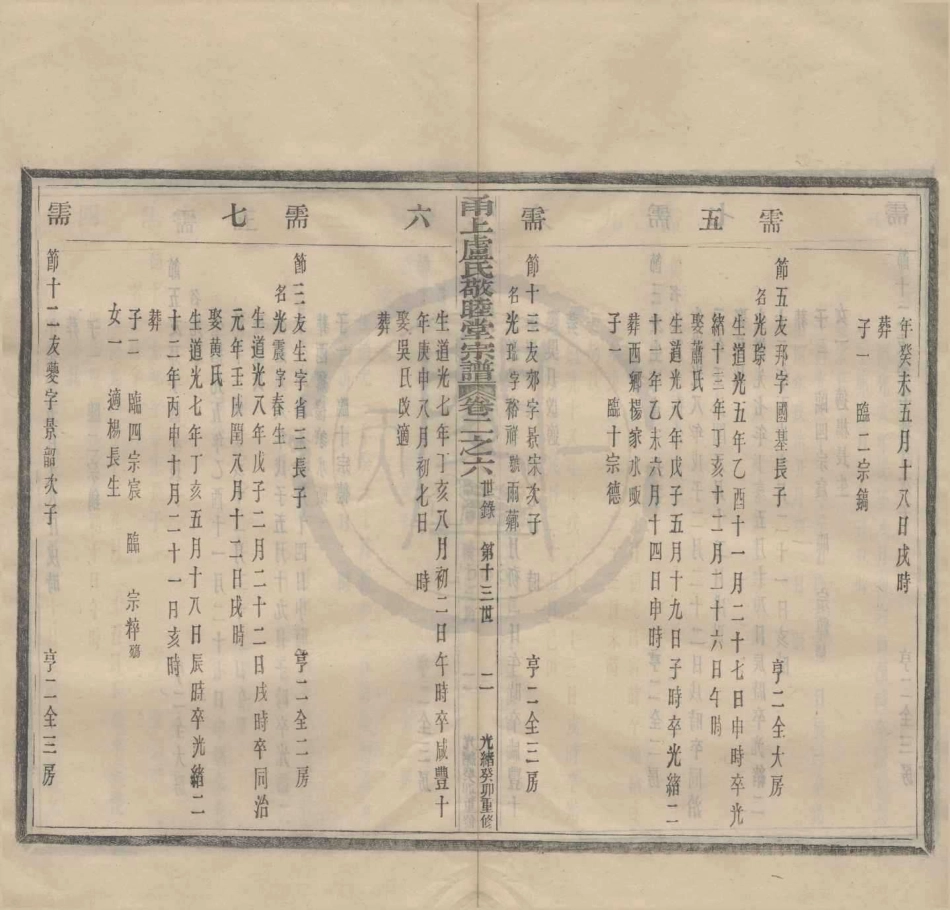 年癸未五月十八日戌時
葬
子一 臨二宗鍋
需五
節五友邦字國基長子 亨二全大房
名光琮
生道光五年乙酉十一月二十七日申時卒光
緒十三年丁亥十二月二十六日午時
娶蕭氏
生道光八年戊子五月十九日子時卒光緒二
十一年乙未六月十四日申時
葬西鄉楊家水
子一 臨十宗德
需六
節十三友郊字景宋次子 亨二全三房
名光瑤字裕號雨薌
甬上盧氏敬睦堂宗譜 卷二之六 世錄 第十三世 二 光緒癸卯重修
生道光七年丁亥八月初二日午時卒咸豐十
年庚申八月初七日 時
娶吳氏改適
葬
需七
節三友生字省三長子 亨二全二房
名光震字春生
生道光八年戊子二月二十二日戌時卒同治
元年壬戌閏八月十二日戌時
娶黃氏
生道光七年丁亥五月十八日辰時卒光緒二
十二年丙申十月二十一日亥時
葬
子二 臨四宗宸 臨 宗粹殤
女一 適楊長生
需
節十二友夔字景韶次子 亨二全三房